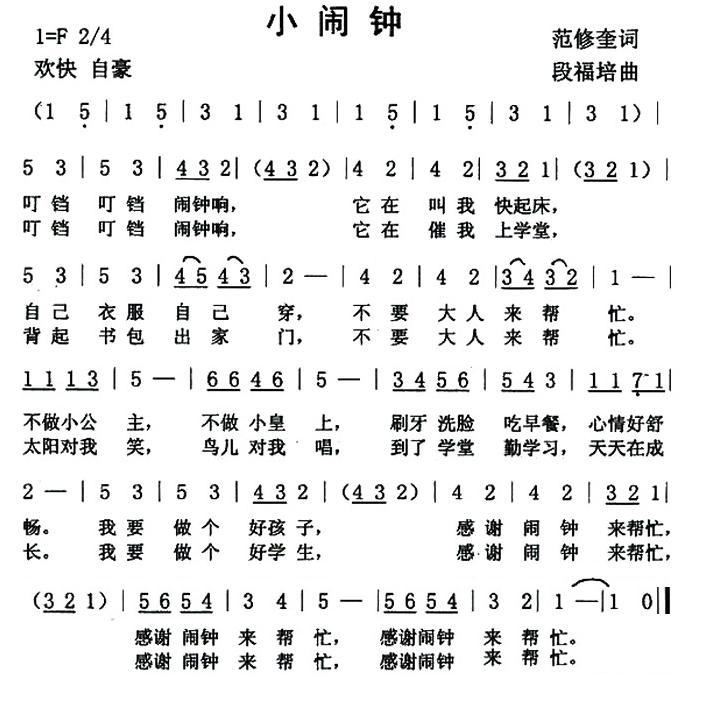 小闹钟
1=F 2/4 范修奎词
欢快 自豪 段福培曲
(1 5̣ | 1 5̣ | 3 1 | 3 1 | 1 5̣ | 1 5̣ | 3 1 | 3 1) |
5 3 | 5 3 | 4 3 2 | (4 3 2) | 4 2 | 4 2 | 3 2 1 | (3 2 1) |
叮铛 叮铛 闹钟响, 它在 叫我 快起床,
叮铛 叮铛 闹钟响, 它在 催我 上学堂,
5 3 | 5 3 | 4 5 4 3 | 2 — | 4 2 | 4 2 | 3 4 3 2 | 1 — |
自己 衣服 自己 穿, 不要 大人 来帮 忙。
背起 书包 出家 门, 不要 大人 来帮 忙。
1 1 1 3 | 5 — | 6 6 4 6 | 5 — | 3 4 5 6 | 5 4 3 | 1 1 7̣ 1 |
不做小公 主, 不做小皇 上, 刷牙洗脸 吃早餐, 心情好舒
太阳对我 笑, 鸟儿对我 唱, 到了学堂 勤学习, 天天在成
2 — | 5 3 | 5 3 | 4 3 2 | (4 3 2) | 4 2 | 4 2 | 3 2 1 |
畅。 我要 做个 好孩子, 感谢 闹钟 来帮忙,
长。 我要 做个 好学生, 感谢 闹钟 来帮忙,
(3 2 1) | 5 6 5 4 | 3 4 | 5 — | 5 6 5 4 | 3 2 | 1 — | 1 0 ‖
感谢闹钟 来帮忙, 感谢闹钟 来帮忙。
感谢闹钟 来帮忙, 感谢闹钟 来帮忙。